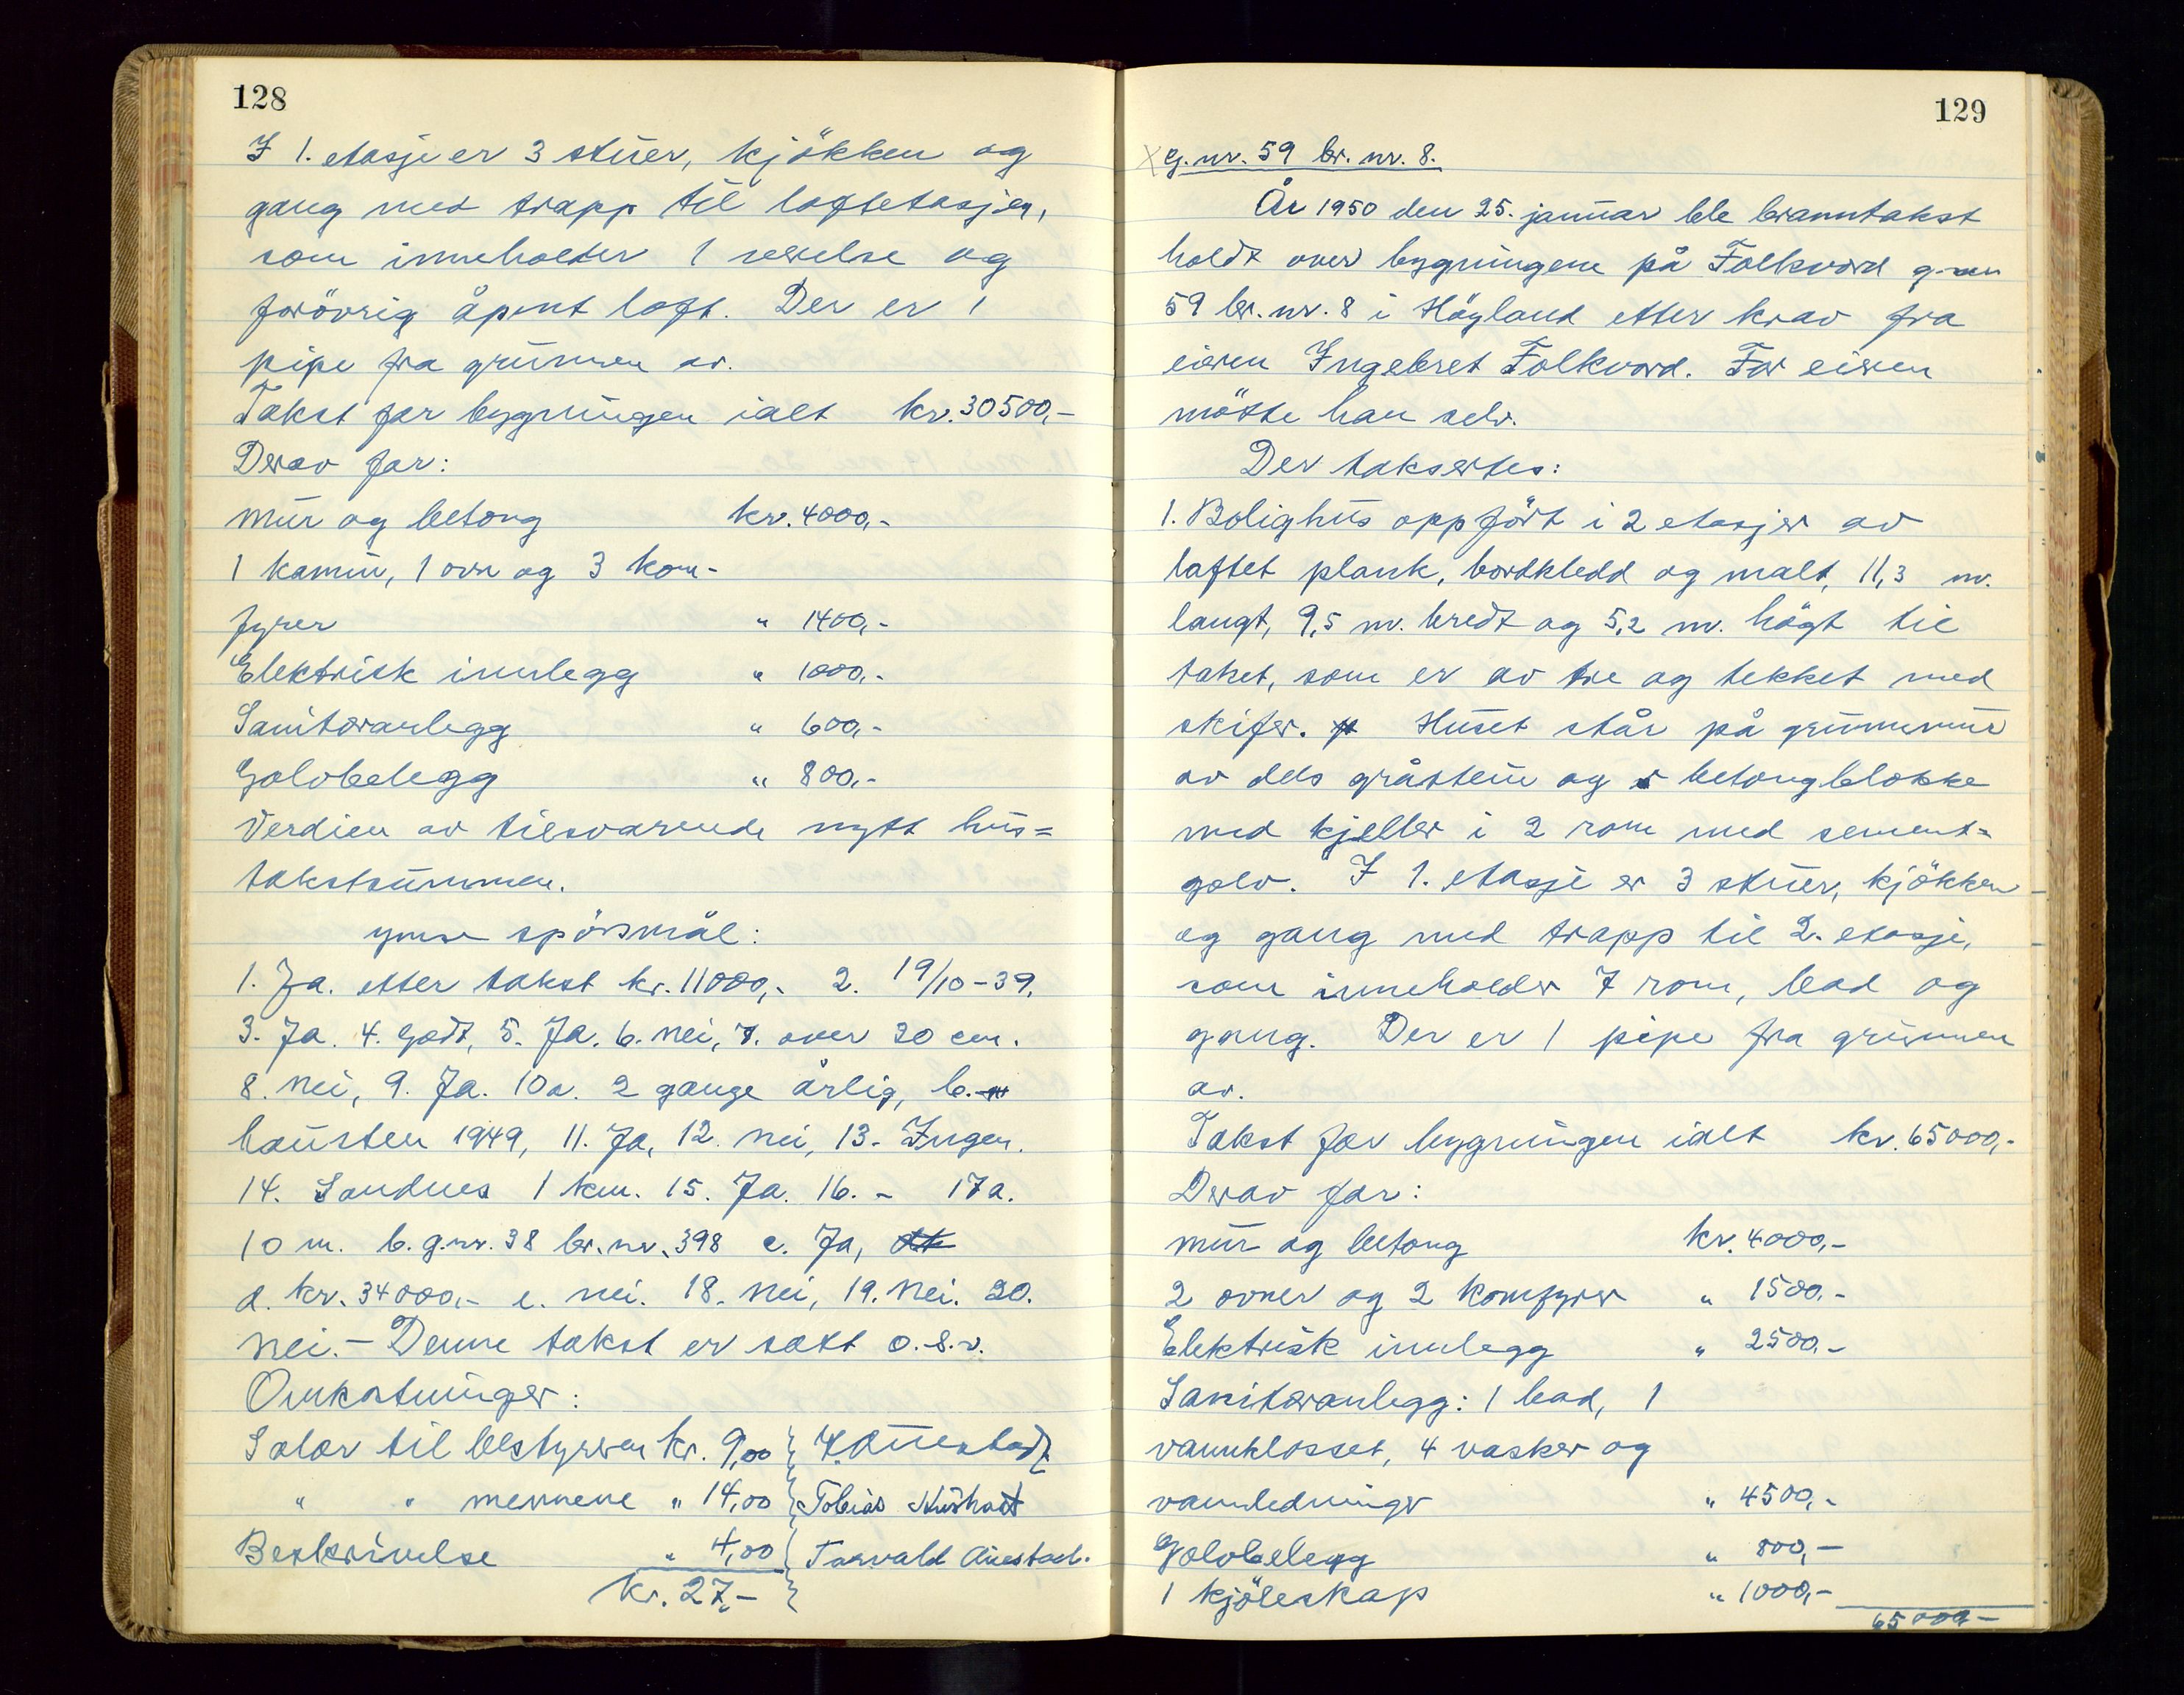 128
I 1. etasje er 3 stuer, kjökken og
gang med trapp til loftetasjen,
som inneholder 1 verelse og
forövrig åpent loft. Der er 1
pipe fra grunnen av.
Takst for bygningen ialt kr. 30500,-
Derav for:
mur og betong kr. 4000,-
1 kamin, 1 ovn og 3 kom-
fyrer " 1400,-
Elektrisk innlegg " 1000,-
Sanitæranlegg " 600,-
Golvbelegg " 800,-
Verdien av tilsvarende nytt hus=
takstsummen.
ymse spörsmål:
1. Ja. etter takst kr. 11000,- 2. 19/10-39.
3. Ja. 4. Godt, 5. Ja. 6. nei, 7. over 30 cm.
8. nei, 9. Ja. 10a. 2 gange årlig, b.
hausten 1949, 11. Ja, 12. nei, 13. Ingen.
14. Sandnes 1 km. 15. Ja. 16. - 17a.
10 m. b. g.nr. 38 br.nr. 398 c. Ja,
d. kr. 34000,- e. nei. 18. nei, 19. nei. 20.
nei. - Denne takst er satt o.s.v.
Omkostninger:
Salær til bestyreren kr. 9,00 Auestad
" " mennene " 14,00 Tobias
Beskrivelse " 4,00 Torvald Auestad.
kr. 27,-
129
x g.nr. 59 br. nr. 8.
År 1950 den 25. januar ble branntakst
holdt over bygningene på Folkvord g.nr
59 br. nr. 8 i Höyland etter krav fra
eieren Ingebret Folkvord. For eieren
mötte han selv.
Der taksertes:
1. Bolighus oppfört i 2 etasjer av
laftet plank, bordkledd og malt, 11,3 m.
langt, 9,5 m. bredt og 5,2 m. högt til
taket, som er av tre og tekket med
skifer. Huset står på grunnmur
av dels gråstein og betongblokke
med kjeller i 2 rom med sement=
golv. I 1. etasje er 3 stuer, kjökken
og gang med trapp til 2. etasje,
som inneholder 7 rom, bad og
gang. Der er 1 pipe fra grunnen
av.
Takst for bygningen ialt kr. 65000,-
Derav for:
mur og betong kr. 4000,-
2 ovner og 2 komfyrer " 1500,-
Elektrisk innlegg " 2500,-
Sanitæranlegg: 1 bad, 1
vannklosset, 4 vasker og
vannledninger " 4500,-
Golvbelegg " 800,-
1 kjöleskap " 1000,-
65000,-